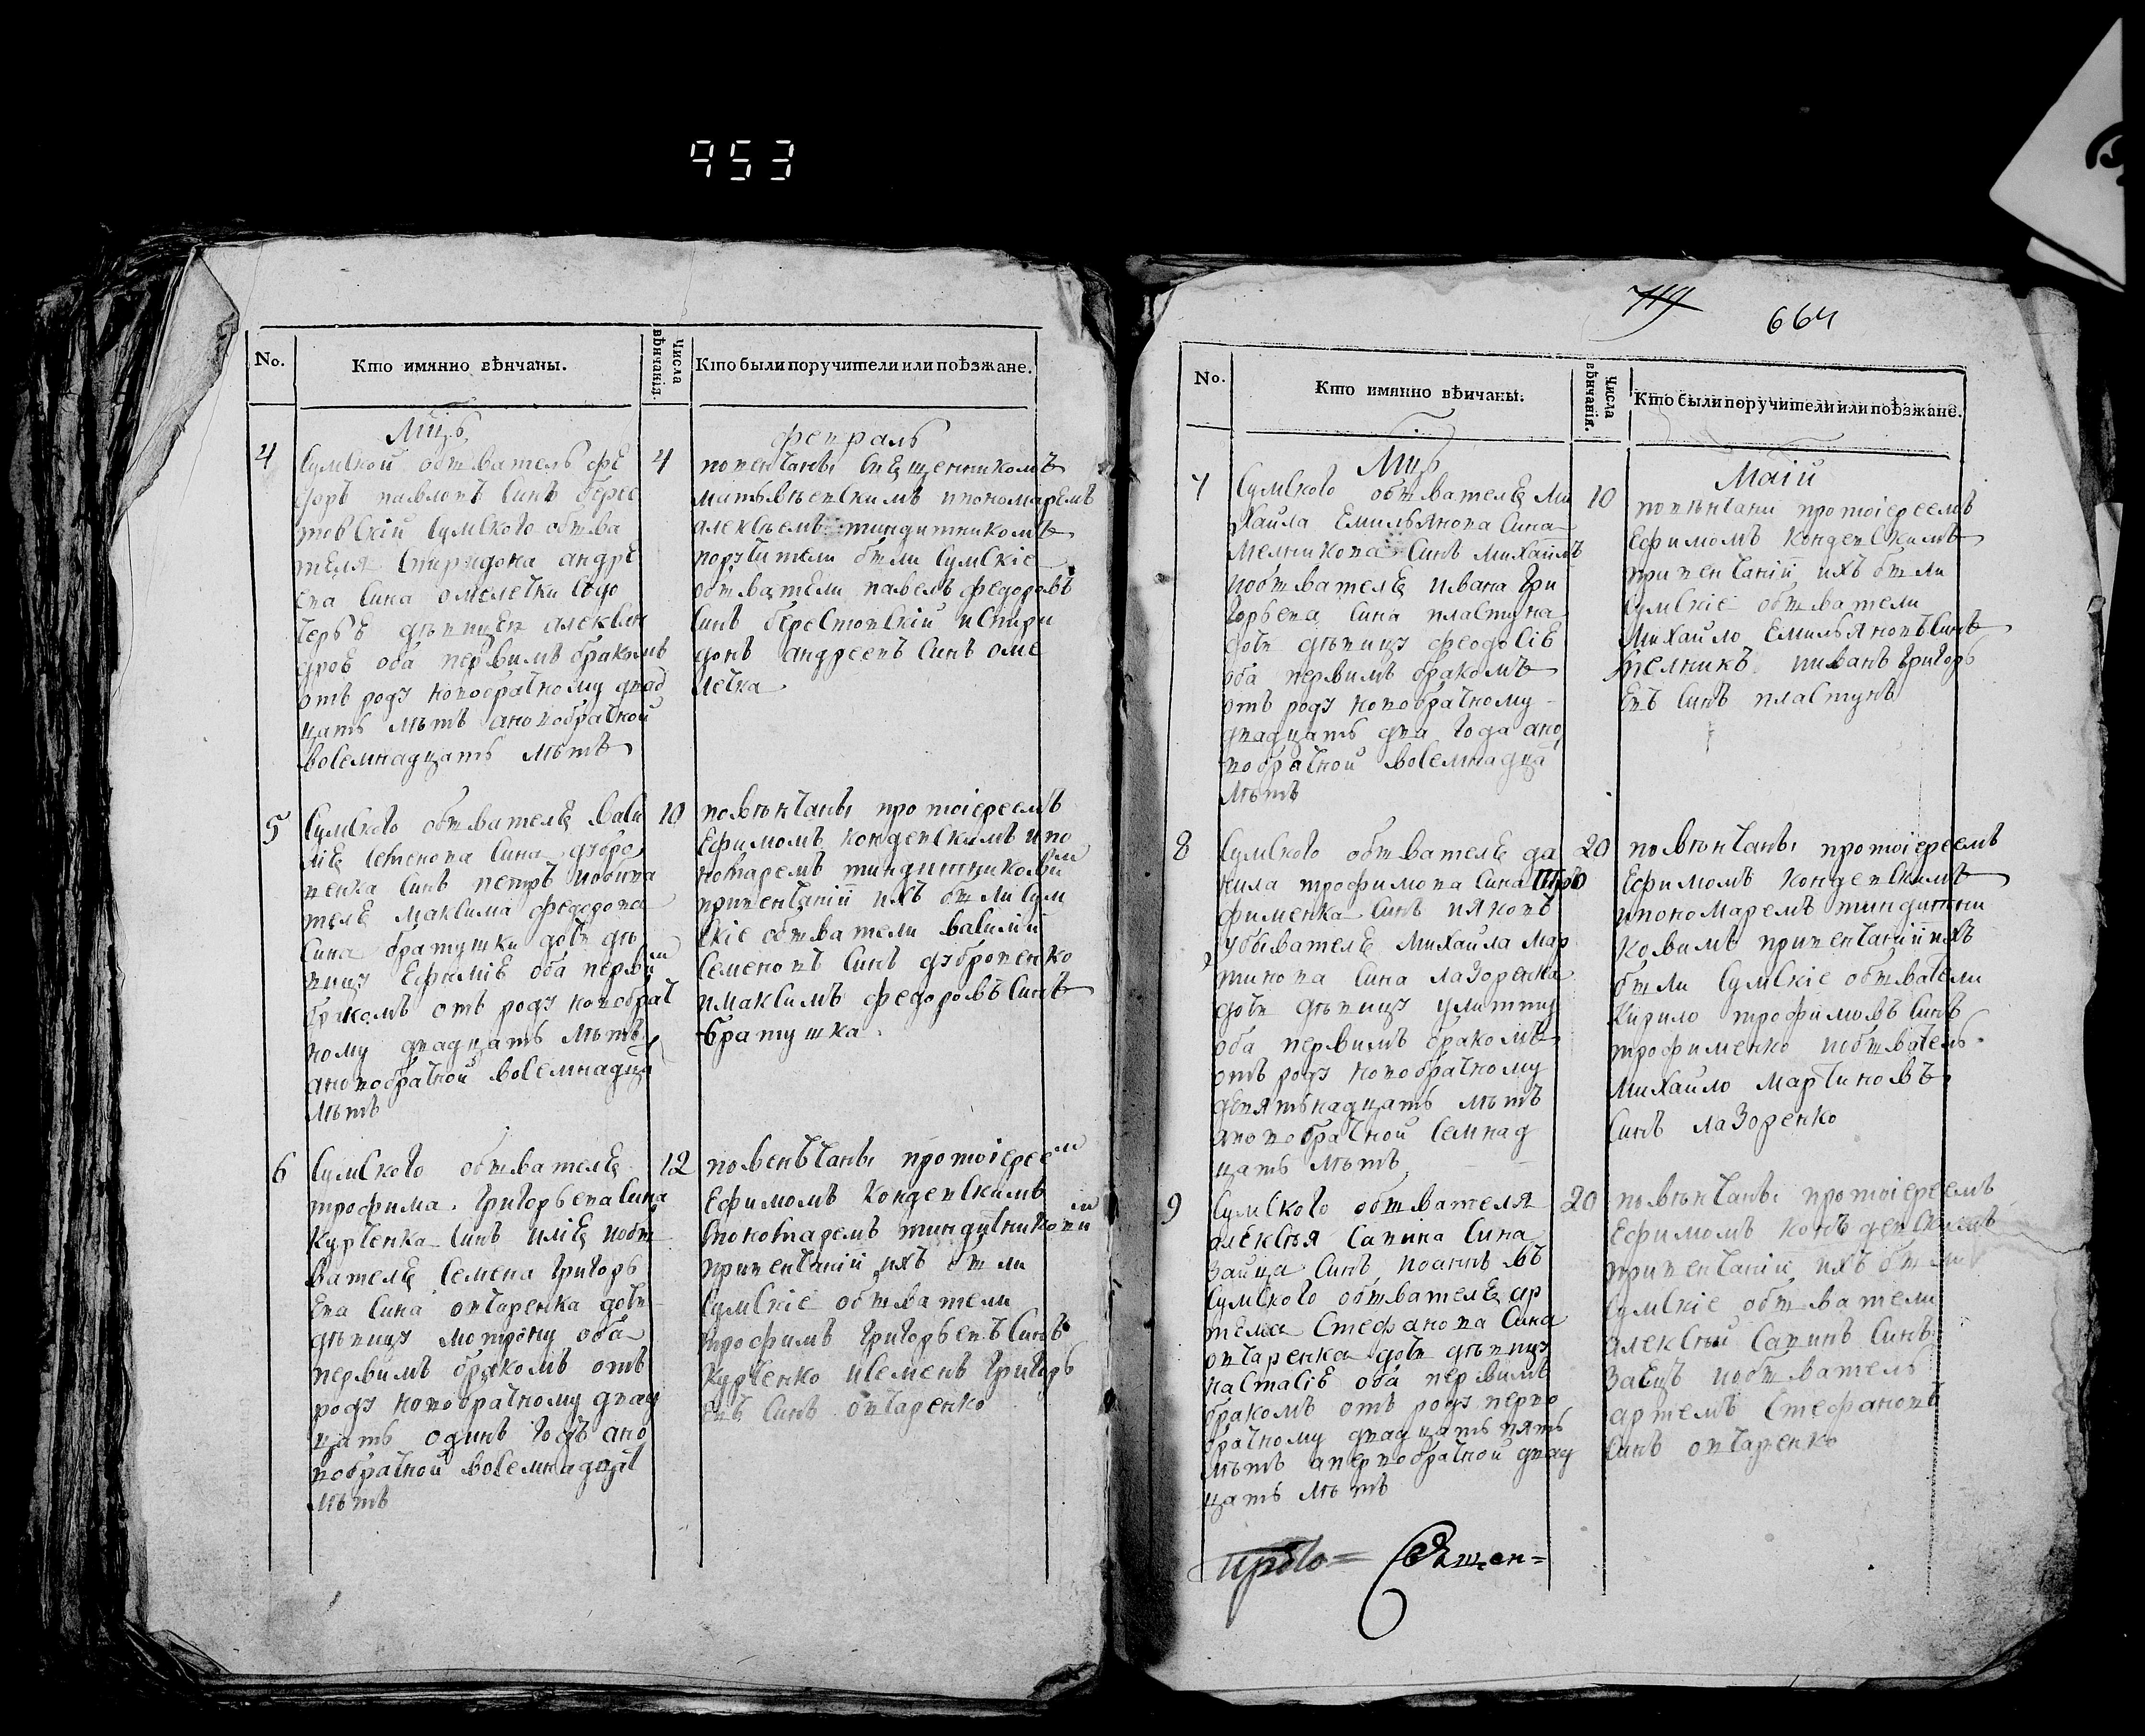 953
664
No.
Кто имянно вѣнчаны.
Числа вѣнчанія.
Кто были поручители или поѣзжане.
Мцъ
февраль
4
Сумской обыватель фе
доръ павловъ Синъ берес
товскій Сумского обыва
теля Спиридона андре
ева Сина омелечки
дѣвицею александ
оба первимъ бракомъ
отъ роду новобрачному двад
цать лѣтъ а новобрачной
восемнадцать лѣтъ
4
повенчаны Священникомъ
ипономаремъ
алексѣемъ
поручители были Сумскіе
обыватели павелъ федоровъ
Синъ берестовскій и Спири
донъ андреевъ Синъ оме
лечка
5
Сумского обывателя васи
лія Семенова Сина дубро
венка Синъ петръ и обыва
теля максима федорова
Сина братушки дочь дѣ
вицу Ефимію оба первим
бракомъ отъ роду новобрач
ному двадцать лѣтъ
а новобрачной восемнадца
лѣтъ
10
повѣнчаны протоіереемъ
Ефимомъ кондевскимъ и по
номаремъ
привенчаніи ихъ были Сум
скіе обыватели василій
Семеновъ Синъ дубровенко
и максимъ федоровъ Синъ
братушка
6
Сумского обывателя
трофима григорьева Сина
курченка Синъ илія и обы
вателя Семена григорь
ева Сина овчаренка дочь
дѣвицу мотрону оба
первимъ бракомъ отъ
роду новобрачному двад
цать одинъ годъ а но
вобрачной восемнадцат
лѣтъ
12
повенъчаны протоіерее м
Ефимомъ Кондевскимъ
привенчаніи ихъ были
Сумскіе обыватели
трофимъ григорьевъ Синъ
курченко и Семенъ григорь
евъ Синъ овчаренко
No.
Кто имянно вѣнчаны.
Числа вѣнчанія.
Кто были поручители или поѣзжане.
Мцъ
Маій
7
Сумского обывателя Ми
хайла Емильянова Сина
мелникова Синъ михаилъ
и обывателя ивана гри
горьева Сина пластуна
дочь дѣвицу феодосію
оба первимъ бракомъ
отъ роду новобрачному
двадцать два года а но
вобрачной восемнадца
лѣтъ
10
повѣнчани протоіереемъ
Ефимомъ Кондевскимъ
привенчаніи ихъ были
Сумскіе обыватели
Михайло Емильяновъ Синъ
мелникъ и иванъ григорь
евъ Синъ пластунъ
8
Сумского обывателя да
нила трофимова Сина тро
фименка Синъ
у обывателя Михайла Мар
тинова Сина лазоренка
дочь дѣвицу улитту
оба первимъ бракомъ
отъ роду новобрачному
девятьнадцать лѣтъ
а новобрачной Семнад
цать лѣтъ
20
повѣнчаны протоіереемъ
Ефимомъ Кондевскимъ
и пономаремъ тиндитни
ковимъ привенчаніи ихъ
были Сумскіе обыватели
Кирило трофимовъ Синъ
трофименко и обыватель
Михайло Мартиновъ
Синъ лазоренко
9
Сумского обывателя
алексѣя Савина Сина
зайца Синъ иоаннъ въ
Сумского обывателя ар
тема Стефанова Сина
овчаренка дочь дѣвицу
настасію оба первимъ
бракомъ отъ роду перво
брачному двадцать пять
лѣтъ а первобрачной двад
цать лѣтъ
20
повѣнчаны протоіереемъ
Ефимомъ конъдевскимъ
привенчаніи ихъ были
Сумскіе обыватели
алексѣй Савинъ Синъ
заецъ и обыватель
артемъ Стефановъ
Синъ овчаренко
Священ=